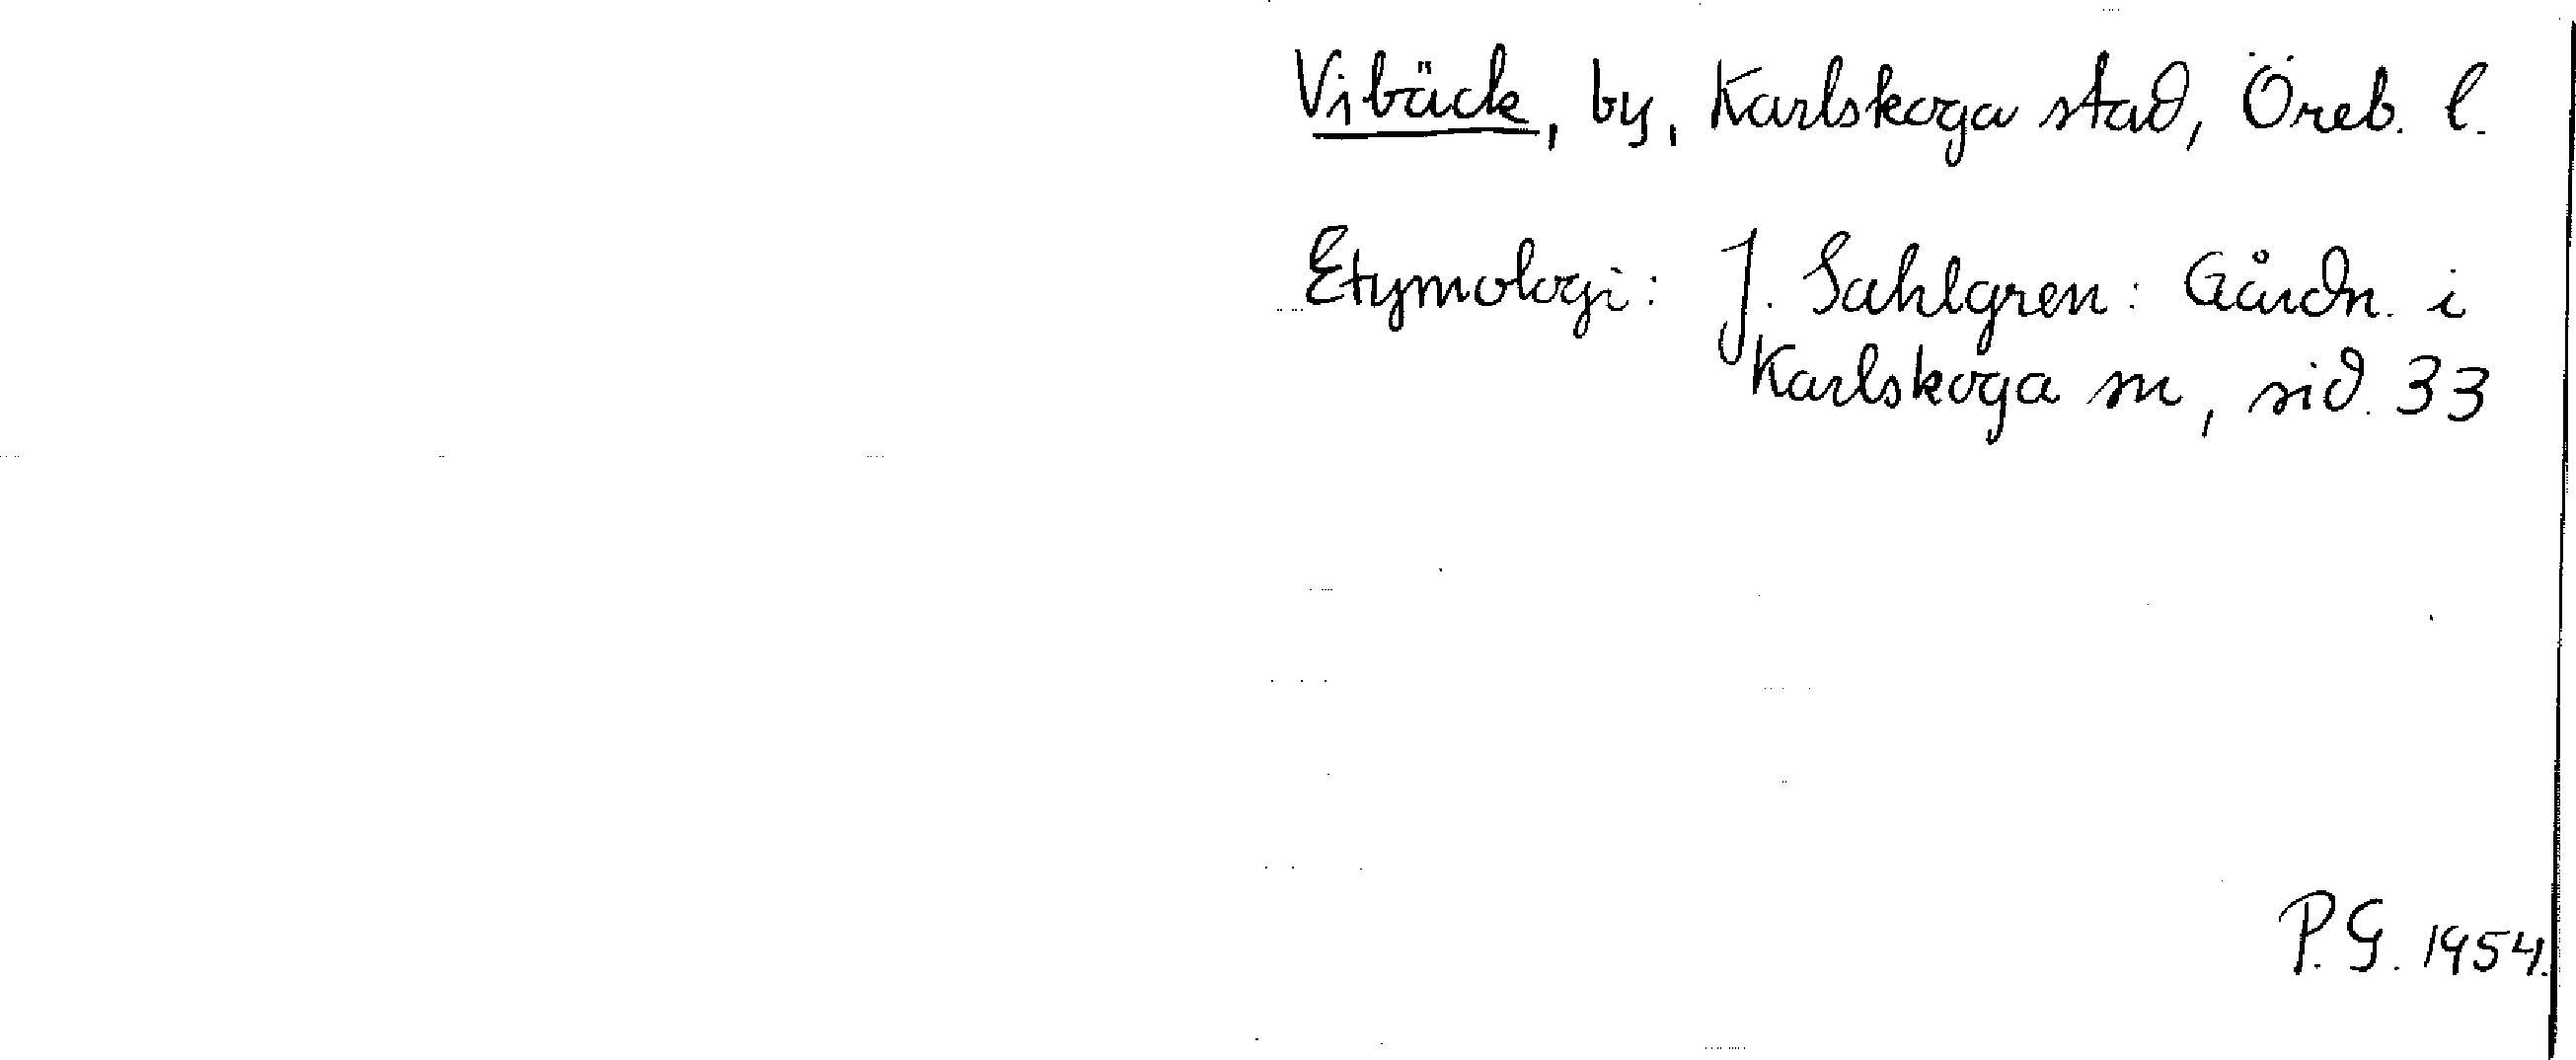 Vibäck, by, Karlskoga stad, Öreb. l.
Etymologi: J. Sahlgren: Gårdn. i
Karlskoga sn, sid. 33
P.G. 1954.